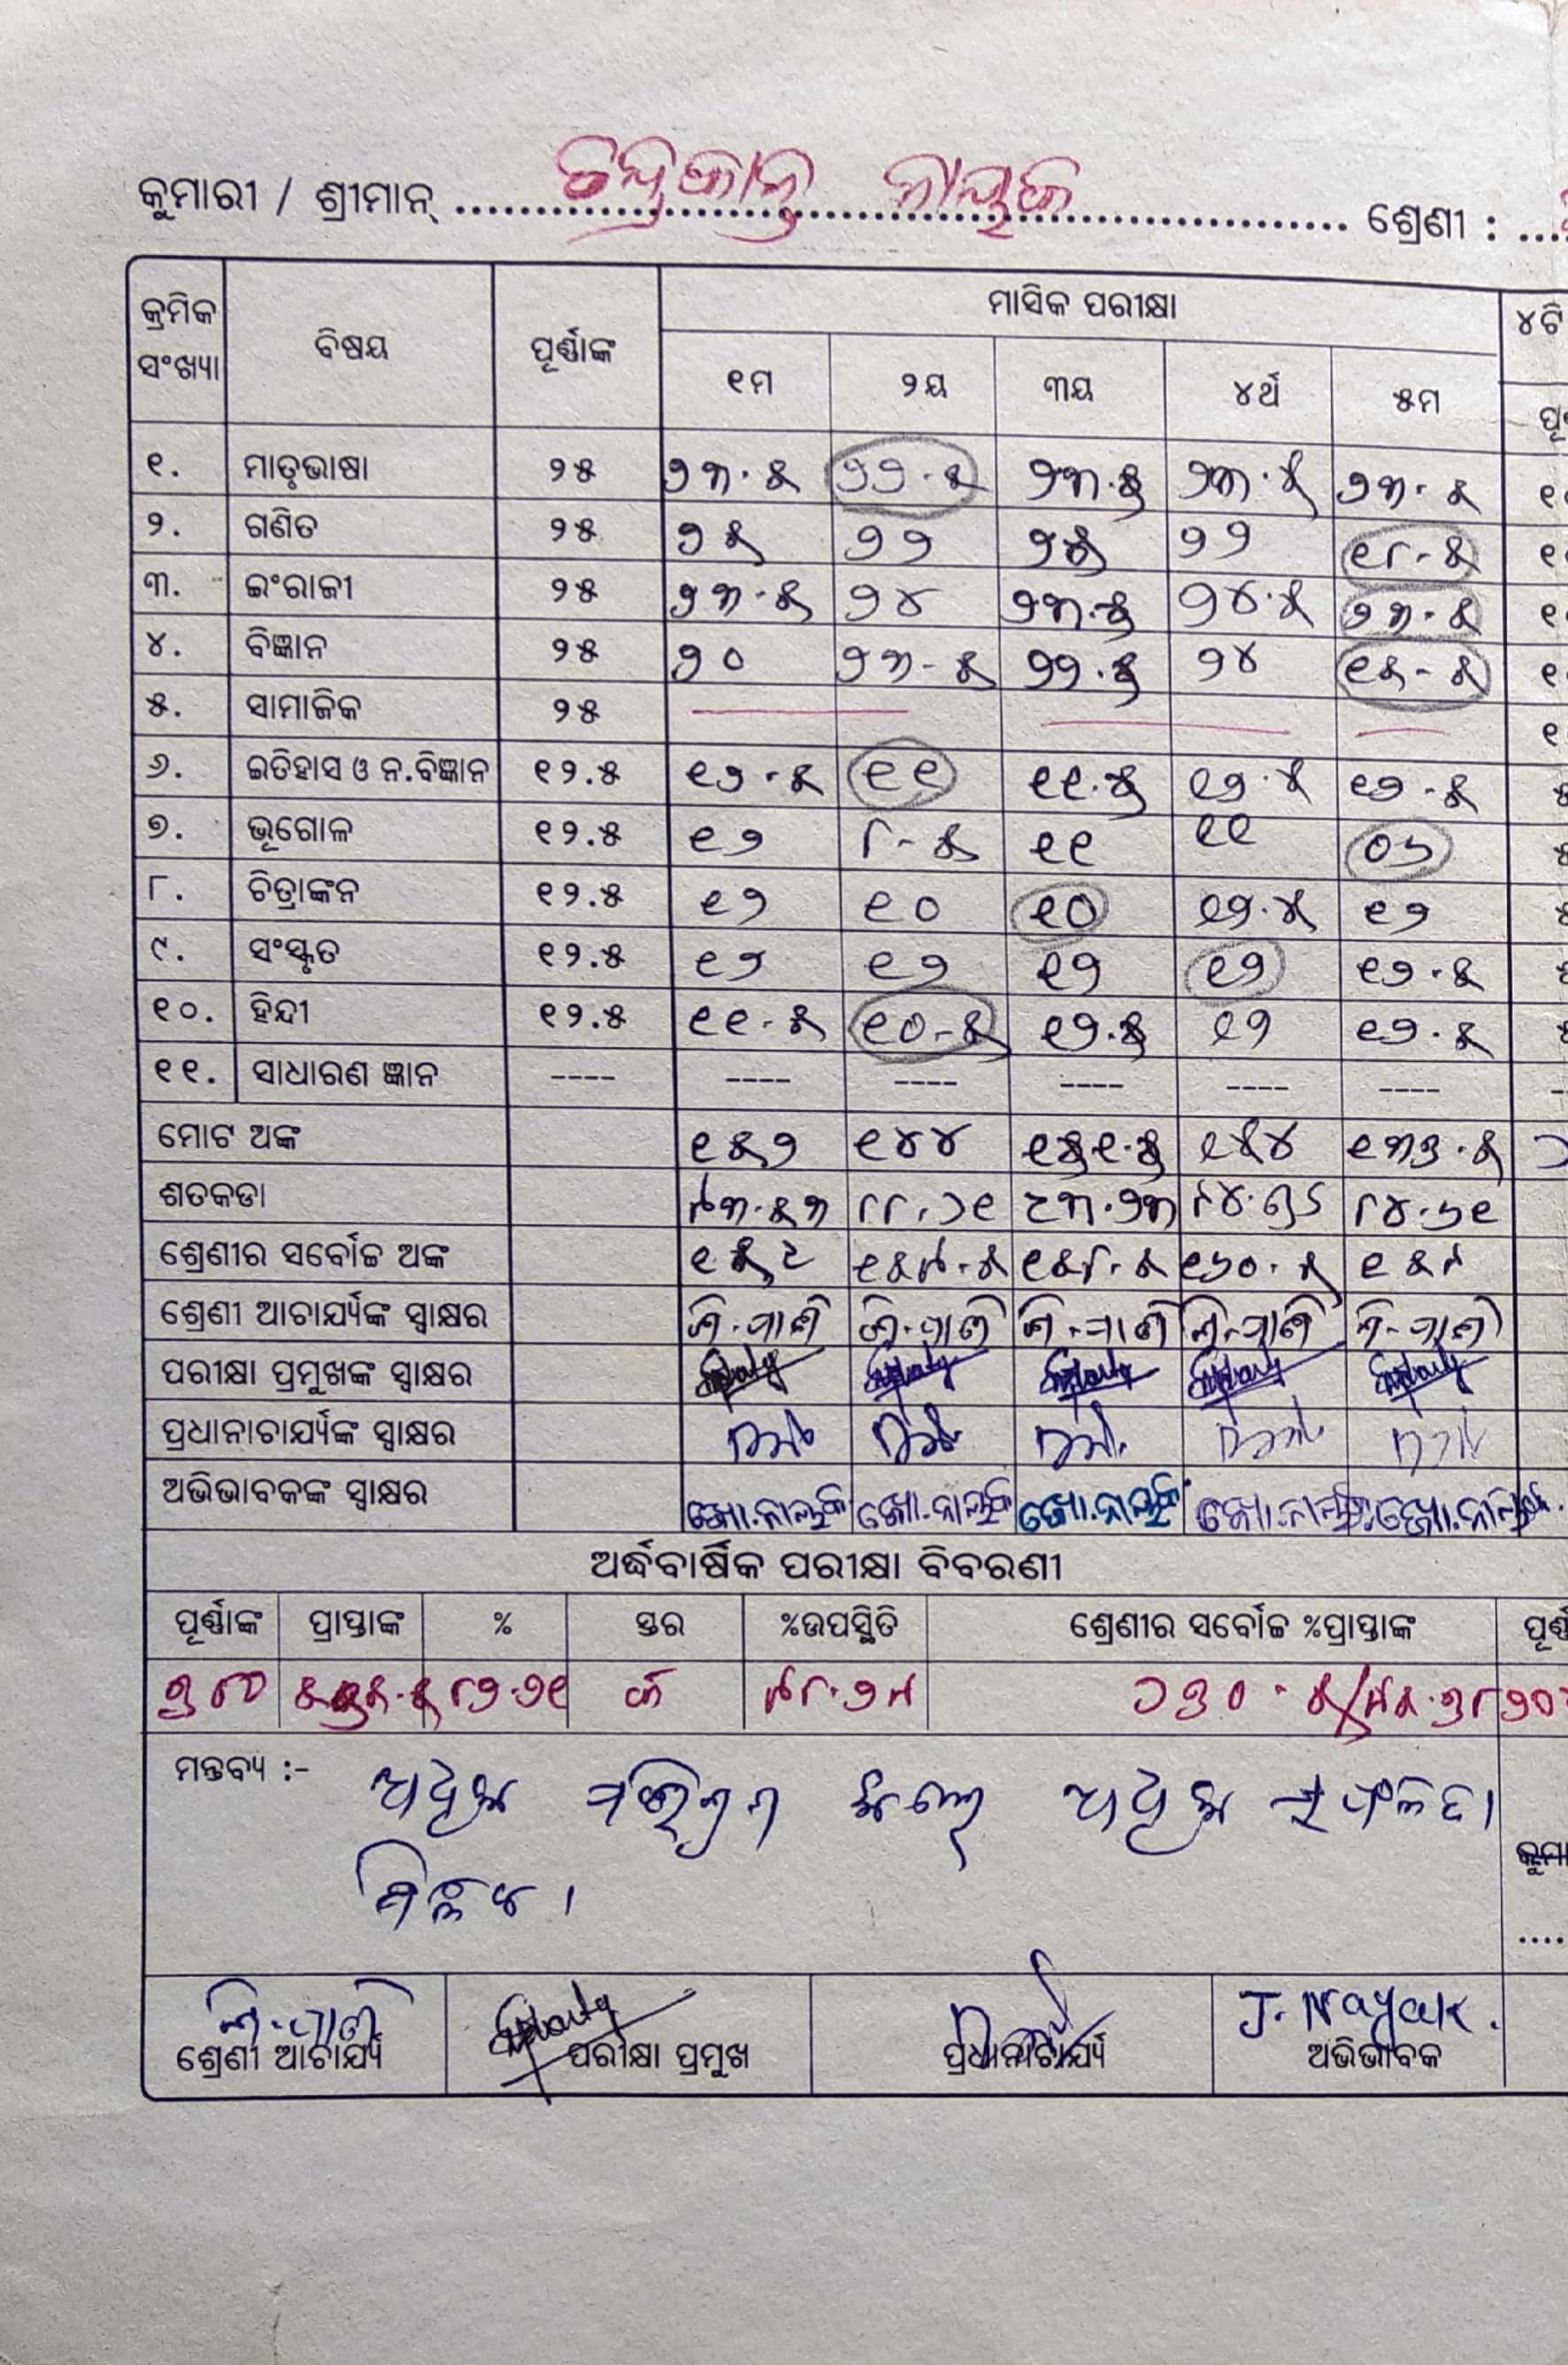 କୁମାରୀ / ଶ୍ରୀମାନ୍ ଚନ୍ଦ୍ରକାନ୍ତ ନାୟକ ଶ୍ରେଣୀ :
କ୍ରମିକ ସଂଖ୍ୟା ବିଷୟ ପୂର୍ଣ୍ଣାଙ୍କ ମାସିକ ପରୀକ୍ଷା ୪ଟି
୧ମ ୨ୟ ୩ୟ ୪ର୍ଥ ୫ମ
୧. ମାତୃଭାଷା ୨୫ ୨୩.୫ ୨୨.୫ ୨୩.୫ ୨୩.୫ ୨୩.୫
୨. ଗଣିତ ୨୫ ୨୫ ୨୨ ୨୫ ୨୨ ୧୮-୫
୩. ଇଂରାଜୀ ୨୫ ୨୩-୫ ୨୪ ୨୩.୫ ୨୪.୫ ୨୩-୫
୪. ବିଜ୍ଞାନ ୨୫ ୨୦ ୨୩-୫ ୨୨.୫ ୨୪ ୧୫-୫
୫. ସାମାଜିକ ୨୫
୬. ଇତିହାସ ଓ ନ.ବିଜ୍ଞାନ ୧୨.୫ ୧୨-୫ ୧୧ ୧୧.୫ ୧୨.୫ ୧୨-୫
୭. ଭୂଗୋଳ ୧୨.୫ ୧୨ ୮-୫ ୧୧ ୧୧ ୦୬
୮. ଚିତ୍ରାଙ୍କନ ୧୨.୫ ୧୨ ୧୦ ୧୦ ୧୨.୫ ୧୨
୯. ସଂସ୍କୃତ ୧୨.୫ ୧୨ ୧୨ ୧୨ ୧୨ ୧୨.୫
୧୦. ହିନ୍ଦୀ ୧୨.୫ ୧୧-୫ ୧୦-୫ ୧୨.୫ ୧୨ ୧୨.୫
୧୧. ସାଧାରଣ ଜ୍ଞାନ ---- ---- ---- ---- ---- ----
ମୋଟ ଅଙ୍କ ୧୫୨ ୧୪୪ ୧୫୧.୫ ୧୫୪ ୧୩୭.୫
ଶତକଡା ୯୩.୫୩ ୮୮.୬୧ ୯୩.୨୩ ୮୪.୬୧
ଶ୍ରେଣୀର ସର୍ବୋଚ୍ଚ ଅଙ୍କ ୧୫୯.୫ ୧୫୮.୫ ୧୬୦.୫ ୧୫୯
ଶ୍ରେଣୀ ଆଚାର୍ଯ୍ୟଙ୍କ ସ୍ୱାକ୍ଷର
ପରୀକ୍ଷା ପ୍ରମୁଖଙ୍କ ସ୍ୱାକ୍ଷର
ପ୍ରଧାନାଚାର୍ଯ୍ୟଙ୍କ ସ୍ୱାକ୍ଷର
ଅଭିଭାବକଙ୍କ ସ୍ୱାକ୍ଷର
ଅର୍ଦ୍ଧବାର୍ଷିକ ପରୀକ୍ଷା ବିବରଣୀ
ପୂର୍ଣ୍ଣାଙ୍କ ପ୍ରାପ୍ତାଙ୍କ % ସ୍ତର %ଉପସ୍ଥିତି ଶ୍ରେଣୀର ସର୍ବୋଚ୍ଚ %ପ୍ରାପ୍ତାଙ୍କ
୮୨.୨୧ କ ୯୮.୨୯
ମନ୍ତବ୍ୟ :- ଅଧିକ ପରିଶ୍ରମ କଲେ ଅଧିକ ସଫଳତା
ମିଳିବ ।
ଶ୍ରେଣୀ ଆଚାର୍ଯ୍ୟ ପରୀକ୍ଷା ପ୍ରମୁଖ ପ୍ରଧାନାଚାର୍ଯ୍ୟ J. Nayak. ଅଭିଭାବକ